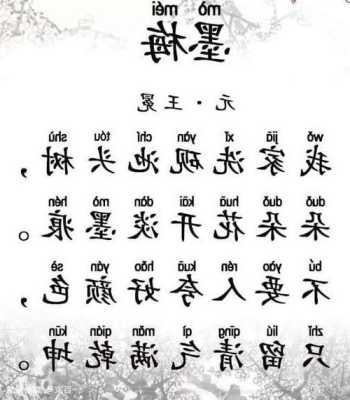 mò méi
墨梅
元·王冕
wǒ jiā xǐ yàn chí tóu shù
我家洗砚池头树，
duǒ duǒ huā kāi dàn mò hén
朵朵花开淡墨痕。
bú yào rén kuā hǎo yán sè
不要人夸好颜色，
zhǐ liú qīng qì mǎn qián kūn
只留清气满乾坤。